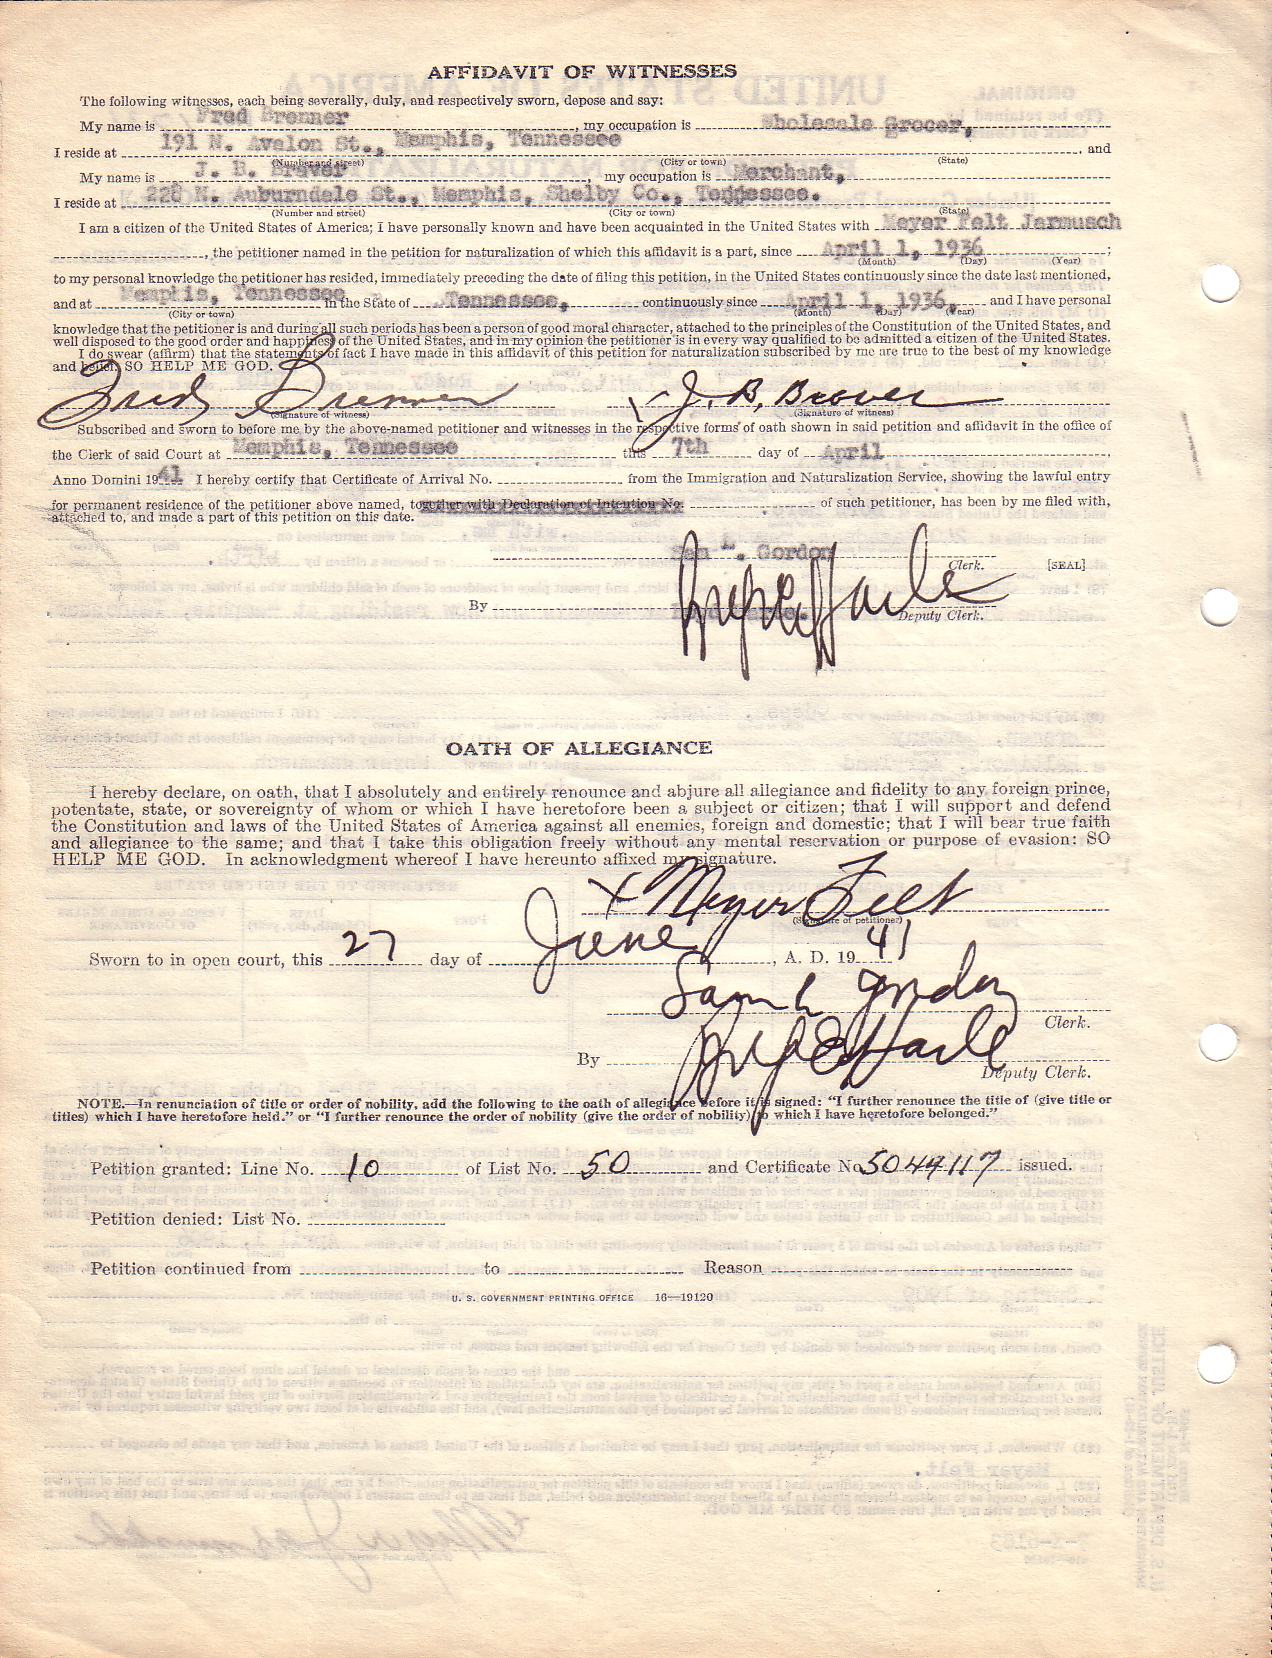 AFFIDAVIT OF WITNESSES
The following witnesses, each being severally, duly, and respectively sworn, depose and say:
My name is Fred Brenner, my occupation is Wholesale Grocer,
I reside at 191 N. Avalon St., Memphis, Tennessee, and
(Number and street) (City or town) (State)
My name is J. B. Braver, my occupation is Merchant,
I reside at 228 N. Auburndale St., Memphis, Shelby Co., Tennessee.
(Number and street) (City or town) (State)
I am a citizen of the United States of America; I have personally known and have been acquainted in the United States with Meyer Felt Jarmusch
, the petitioner named in the petition for naturalization of which this affidavit is a part, since April 1, 1936;
(Month) (Day) (Year)
to my personal knowledge the petitioner has resided, immediately preceding the date of filing this petition, in the United States continuously since the date last mentioned,
and at Memphis, Tennessee in the State of Tennessee, continuously since April 1, 1936, and I have personal
(City or town) (Month) (Day) (Year)
knowledge that the petitioner is and during all such periods has been a person of good moral character, attached to the principles of the Constitution of the United States, and
well disposed to the good order and happiness of the United States, and in my opinion the petitioner is in every way qualified to be admitted a citizen of the United States.
I do swear (affirm) that the statements of fact I have made in this affidavit of this petition for naturalization subscribed by me are true to the best of my knowledge
and belief, SO HELP ME GOD.
Fred Brenner J. B. Braver
(Signature of witness) (Signature of witness)
Subscribed and sworn to before me by the above-named petitioner and witnesses in the respective forms of oath shown in said petition and affidavit in the office of
the Clerk of said Court at Memphis, Tennessee this 7th day of April,
Anno Domini 1941 I hereby certify that Certificate of Arrival No. from the Immigration and Naturalization Service, showing the lawful entry
for permanent residence of the petitioner above named, together with Declaration of Intention No. of such petitioner, has been by me filed with,
attached to, and made a part of this petition on this date.
Gordon
Clerk. [SEAL]
By
Deputy Clerk.
OATH OF ALLEGIANCE
I hereby declare, on oath, that I absolutely and entirely renounce and abjure all allegiance and fidelity to any foreign prince,
potentate, state, or sovereignty of whom or which I have heretofore been a subject or citizen; that I will support and defend
the Constitution and laws of the United States of America against all enemies, foreign and domestic; that I will bear true faith
and allegiance to the same; and that I take this obligation freely without any mental reservation or purpose of evasion: SO
HELP ME GOD. In acknowledgment whereof I have hereunto affixed my signature.
x Meyer Felt
(Signature of petitioner)
Sworn to in open court, this 27 day of June, A. D. 1941
Sam L Gordon
Clerk.
By
Deputy Clerk.
NOTE.—In renunciation of title or order of nobility, add the following to the oath of allegiance before it is signed: "I further renounce the title of (give title or
titles) which I have heretofore held." or "I further renounce the order of nobility (give the order of nobility) to which I have heretofore belonged."
Petition granted: Line No. 10 of List No. 50 and Certificate No. 5044117 issued.
Petition denied: List No.
Petition continued from to Reason
U. S. GOVERNMENT PRINTING OFFICE 16—19120